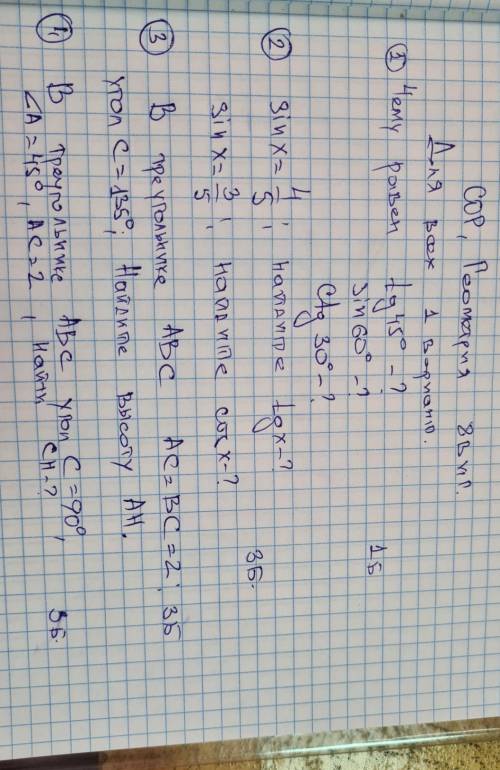 СОР, Геометрия 8 В кл.
Для всех 1 вариант.
① Чему равен tg 45° - ? 1 б
sin 60° - ?
ctg 30° - ?
② sin x = 4/5; найдите tg x - ? 3 б.
sin x = 3/5; найдите cos x - ?
③ В треугольнике ABC AC = BC = 2; 3 б
угол C = 135°; Найдите высоту AH.
④ В треугольнике ABC угол C = 90°,
∠A = 45°, AC = 2, найти CH - ? 3 б.